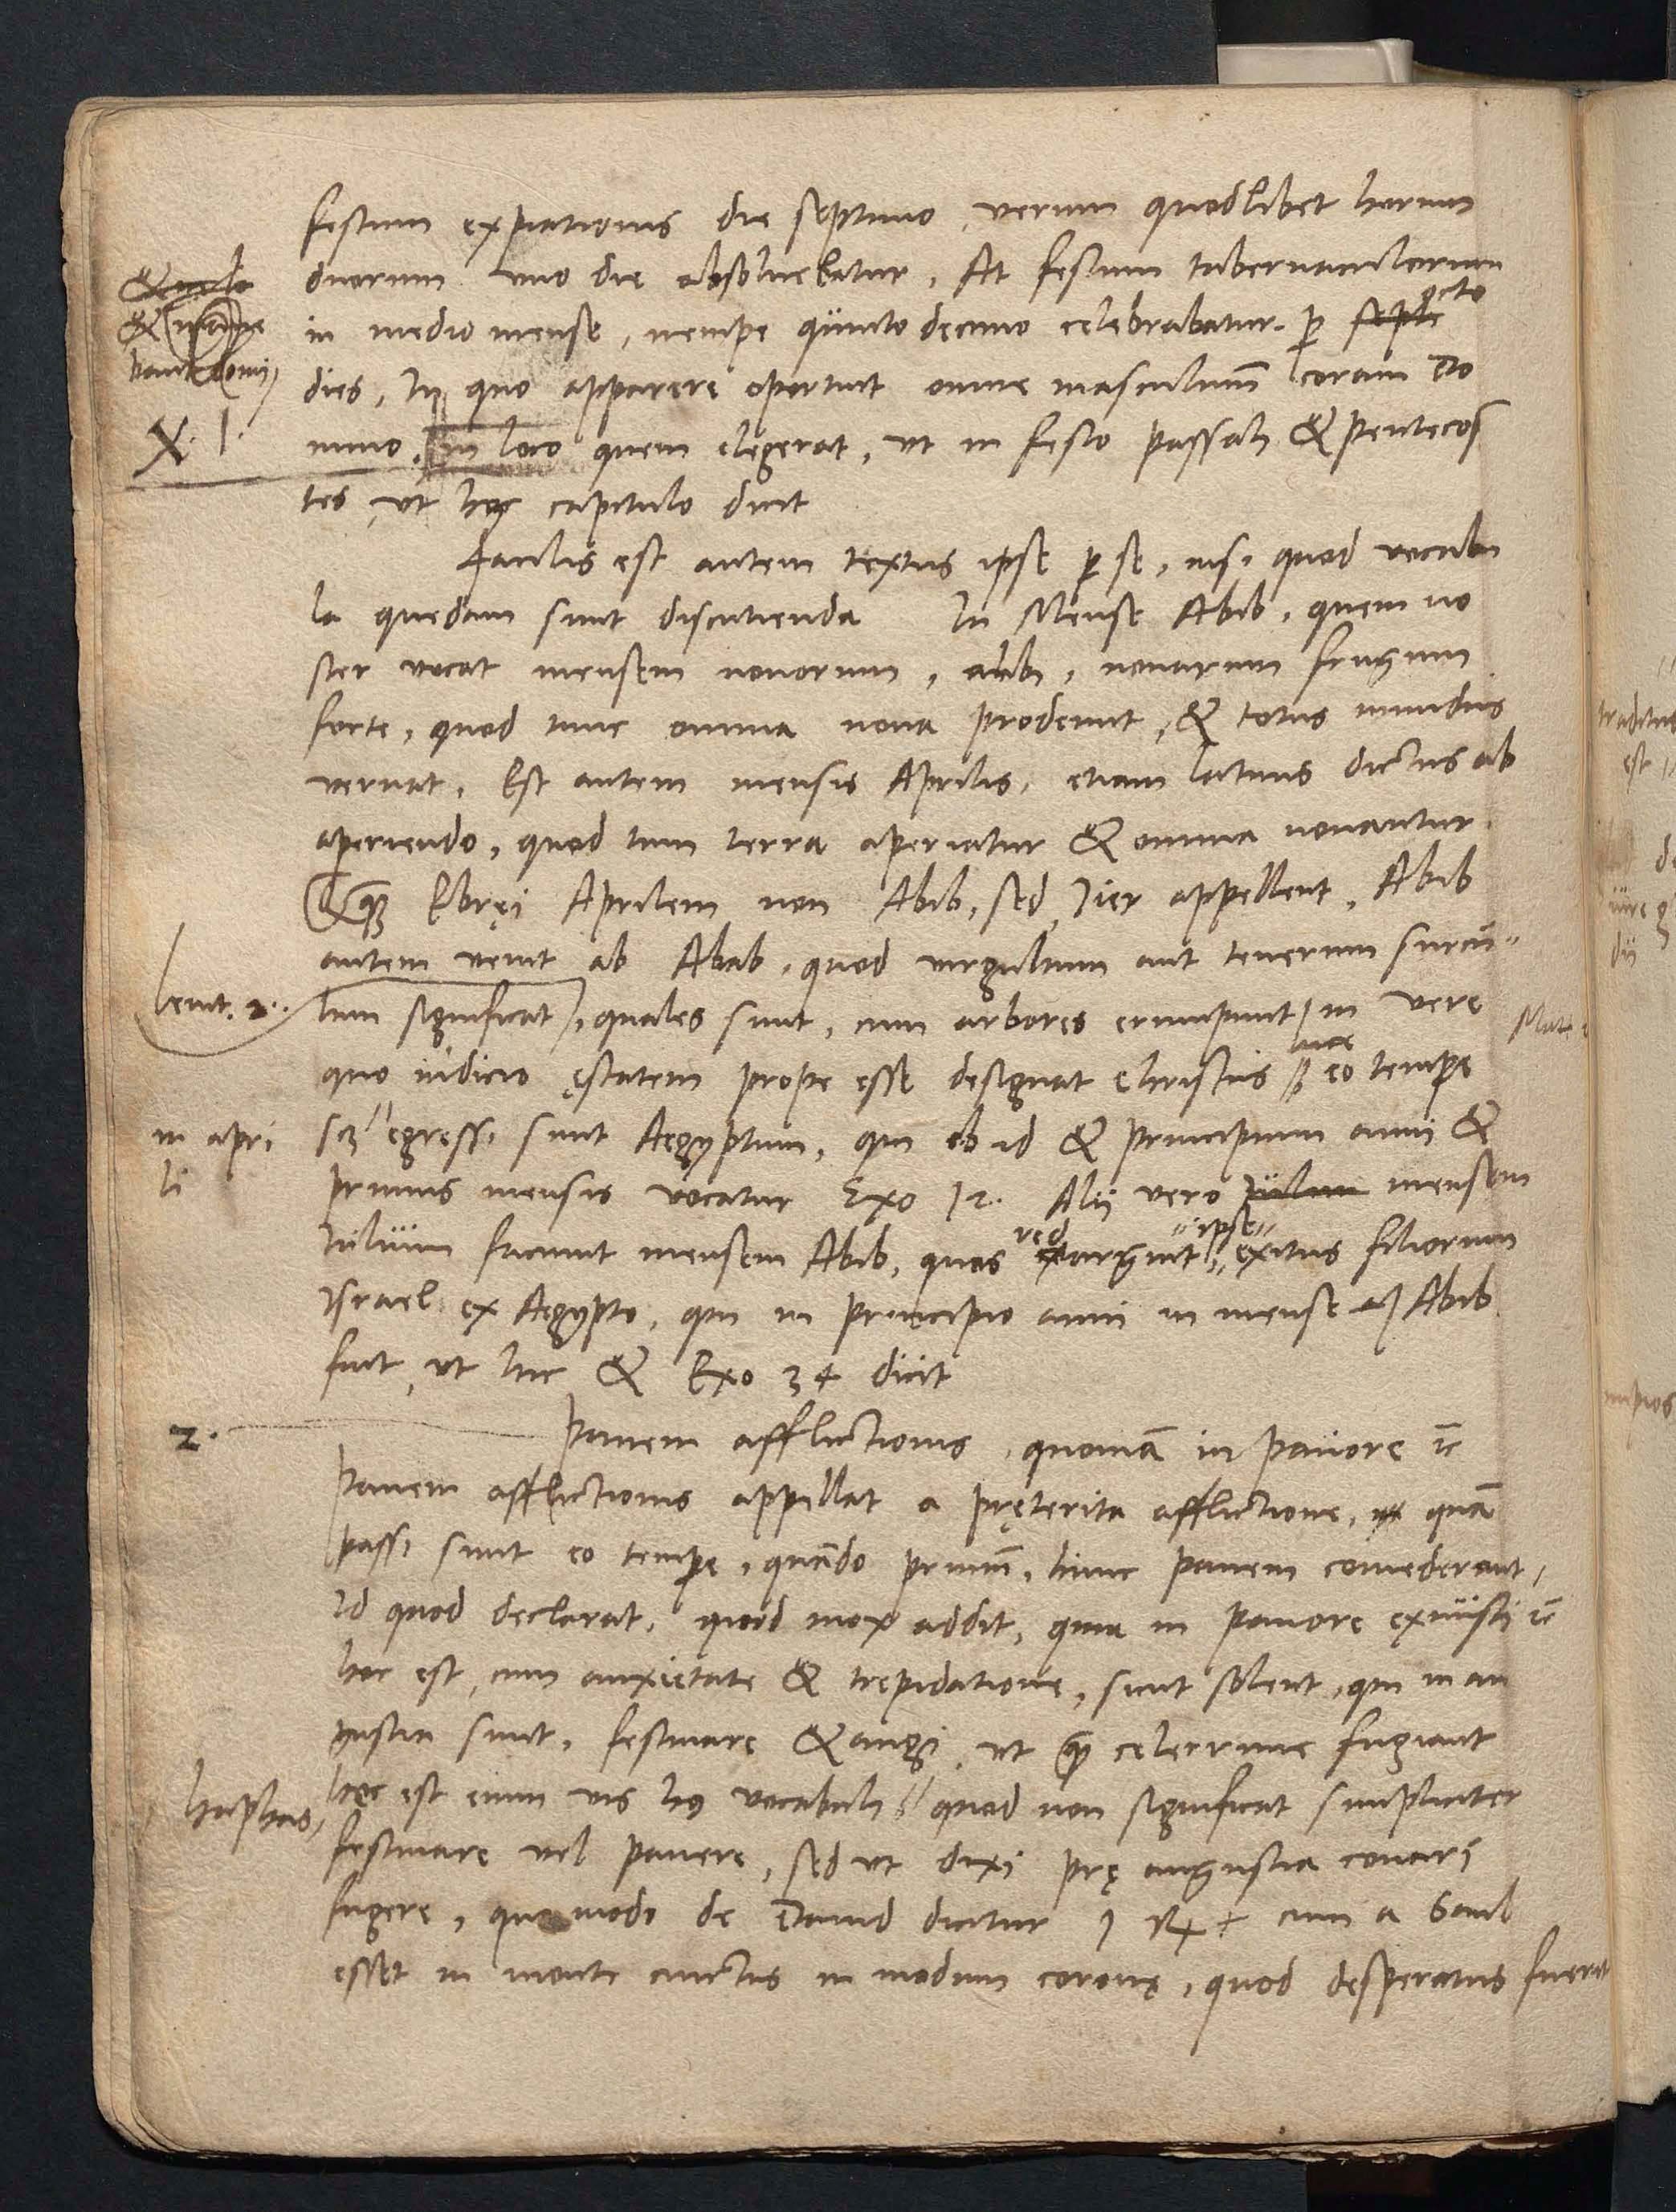 festum expiationis die septimo, verum quodlibet horum
duorum uno die absoluebatur. At festum tabernaculorum
in medio mense, nempe quinto decimo celebrabatur. per octo
dies, In quo apparere oportuit omne masculinum coram Do
mino, in loco quem elegerat, ut in festo passah & pentecos
X. 1.
tes, ut hoc capitulo dicit
Facilis est autem textus ipse per se, nisi quod vocabu
la quedam sunt discutienda In Mense Abib, quem no
ster vocat mensem novorum, alibi, novarum frugum
forte, quod tunc omnia nova prodeunt, & totus mundus
vernat. Est autem mensis Aprilis, etiam latinis dictus ab
aperiendo, quod tum terra aperiatur & omnia novantur.
Ebręi Aprilem non Abib, sed Jier appellent. Abib
autem venit ab Abab, quod virgultum aut tenerum surcu-
Levit. 2.
lum significat, quales sunt, cum arbores erumpunt in vere
quo indicio ęstatem prope esse designat Christus eo tempore
in apri
li
scz egressi sunt Aegyptum, qui ob id & principium anni &
primus mensis vocatur Exo 12. Alij vero mensem
Julium faciunt mensem Abib, quos redarguit ipse exitus filiorum
Israel ex Aegypto, qui in principio anni in mense Abib
fuit, ut hic & Exo 34 dicit
2.
Panem afflictionis, quoniam in pavore etc
Panem afflictionis appellat a pręterita afflictione, quam
passi sunt eo tempore, quando primum, hunc panem comederant,
Id quod declarat, quod mox addit, quia in pavore exiuisti etc
hoc est, cum anxietate & trepidatione, sicut solent, qui in an
gustia sunt, festinare & angi, ut quam celerrime fugiant
haphas,
hęc est enim vis huius vocabuli quod non significat simpliciter
festinare vel pavere, sed ut dixi prę angustia conari
fugere, quomodo de Dauid dicitur 1 cum a Saul
esset in monte cinctus in modum coronę, quod desperatus fuerit